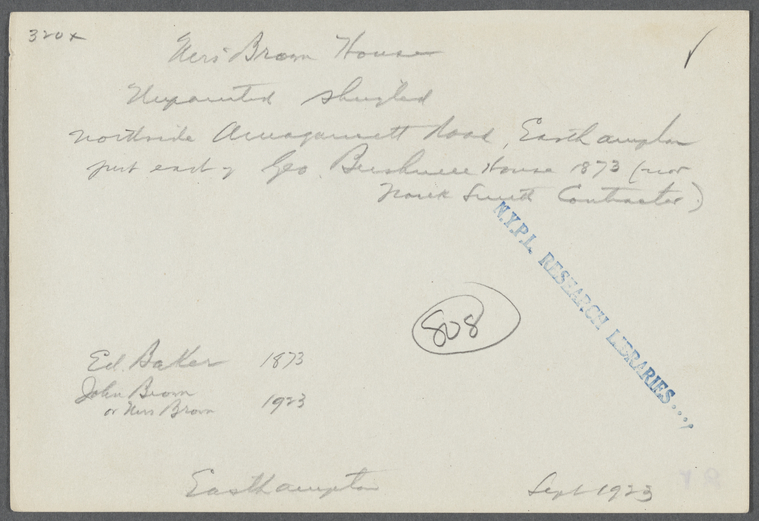 320x
Brown House
Unpainted shingled
Northside Amagansett Road, Easthampton
just east of Geo. House 1873 (now
Smith Contractor)
N.Y.P.L. RESEARCH LIBRARIES....
808
Ed. Baker 1873
John Brown 1923
or Brown
Easthampton Sept 1923